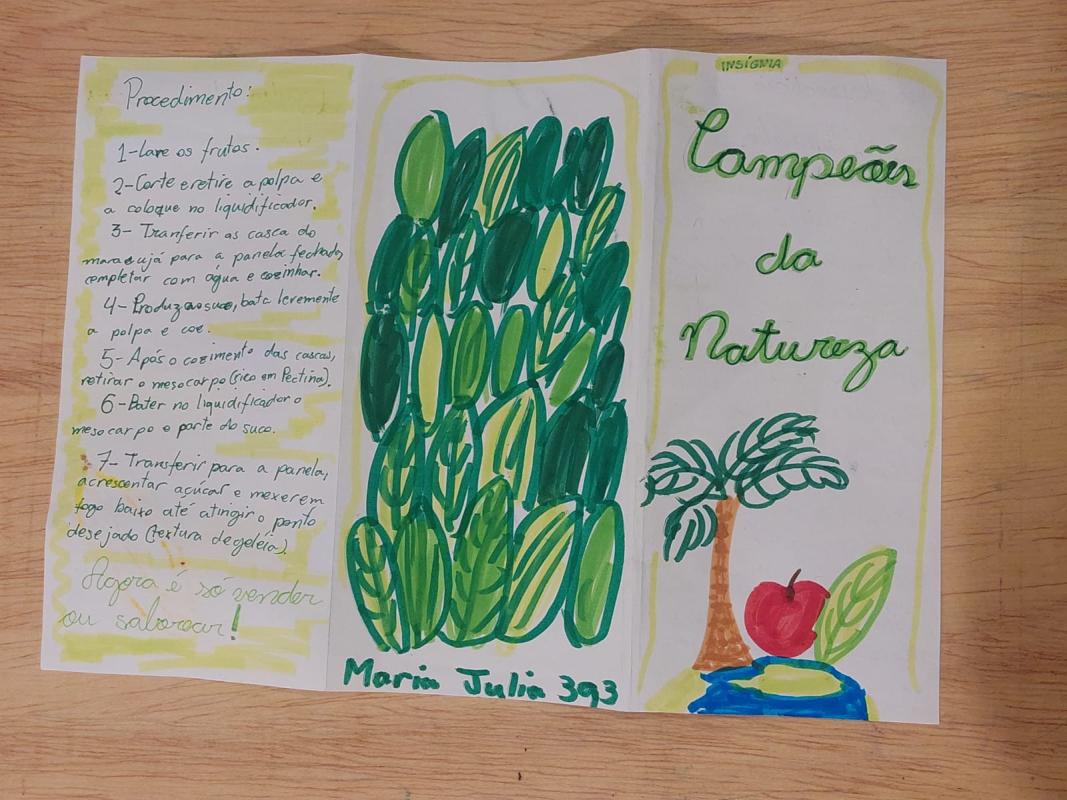 Procedimento:
1-Lave os frutos.
2-Corte e retire a polpa e
a coloque no liquidificador.
3- Tranferir as casca do
maracujá para a panela fechada,
completar com água e cozinhar.
4- Produza o suco, bata levemente
a polpa e coe.
5- Após o cozimento das cascas,
retirar o mesocarpo (rico em Pectina).
6-Bater no liquidificador o
mesocarpo e parte do suco.
7- Transferir para a panela,
acrescentar açúcar e mexer em
fogo baixo até atingir o ponto
desejado (textura de geléia).
Agora é só vender
ou saborear!
Maria Julia 393
INSÍGNIA
Campeões
da
Natureza